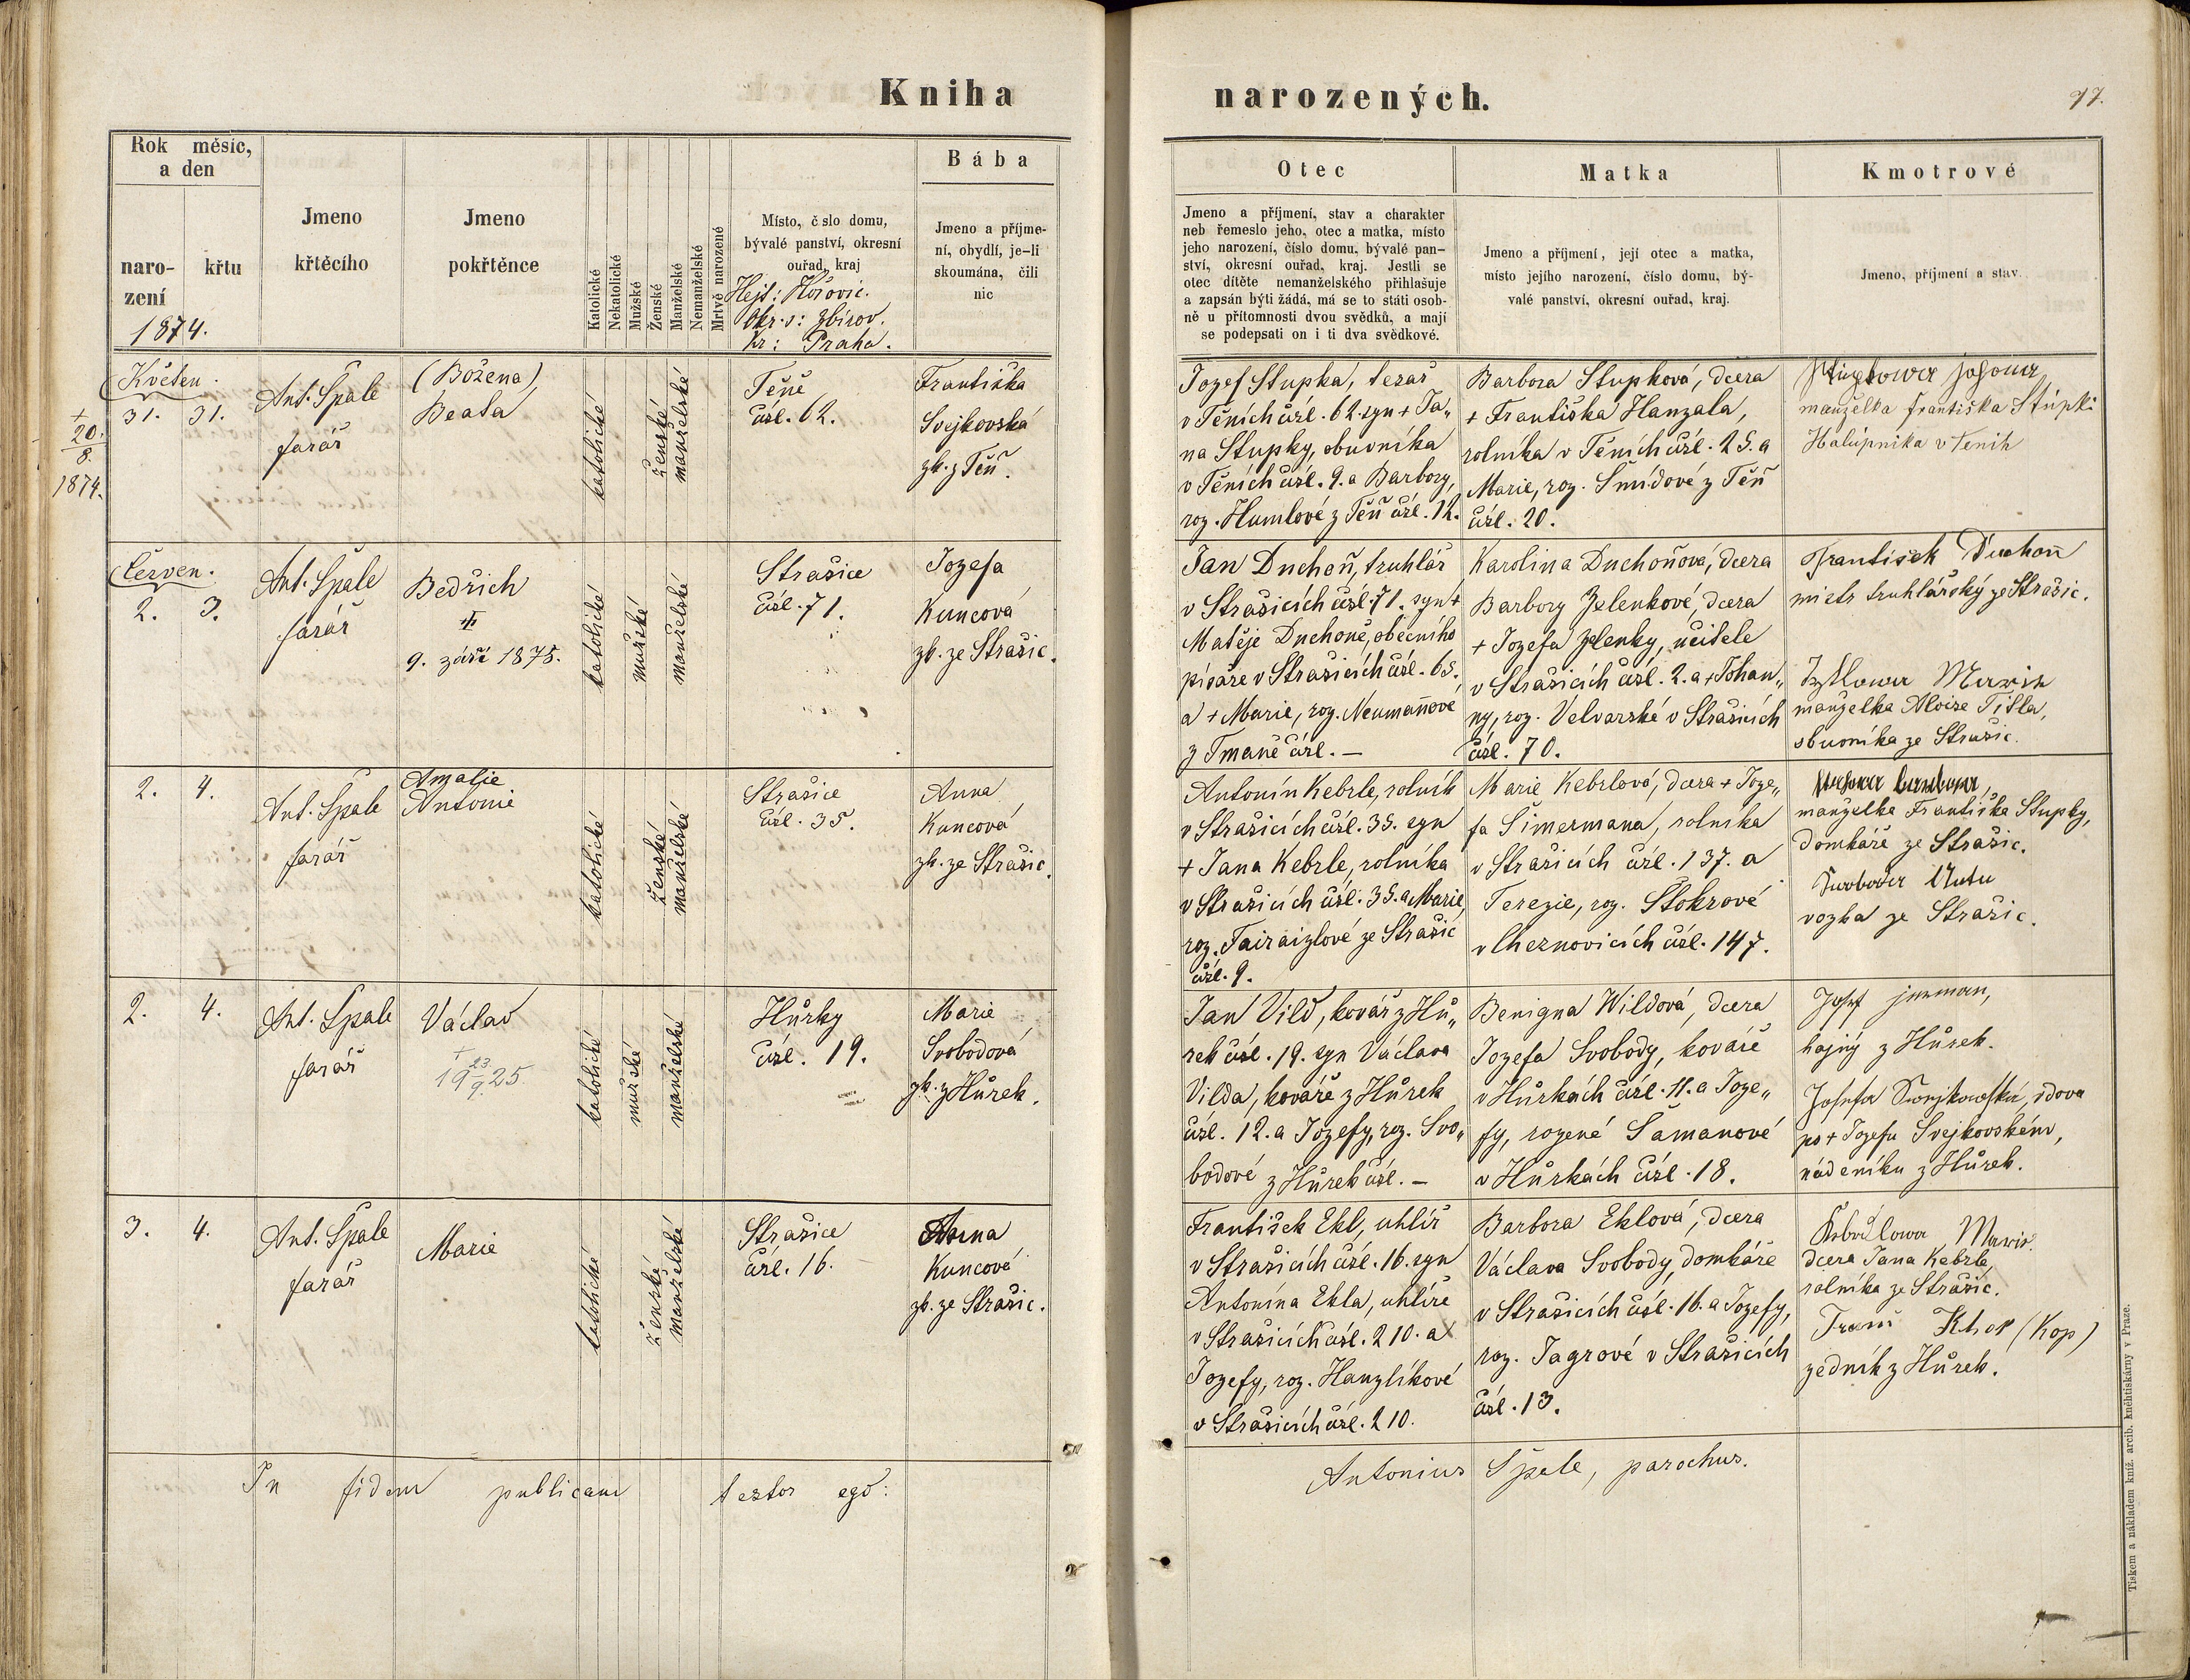 Kniha narozených.
97.
Rok měsíc,
a den
naro-
zení
křtu
1874.
Jmeno
křtěcího
Jmeno
pokřtěnce
Katolické
Nekatolické
Mužské
Ženské
Manželské
Nemanželské
Mrtvě narozené
Místo, č slo domu,
bývalé panství, okresní
ouřad, kraj
Hejt: Hořovic.
Okr. s: Zbirov.
kr: Praha.
Bába
Jmeno a příjme-
ní, obydlí, je-li
skoumána, čili
nic
Otec
Jmeno a příjmení, stav a charakter
neb řemeslo jeho, otec a matka, místo
jeho narození, číslo domu, bývalé pan-
ství, okresní ouřad, kraj. Jestli se
otec dítěte nemanželského přihlašuje
a zapsán býti žádá, má se to státi osob-
ně u přítomnosti dvou svědků, a mají
se podepsati on i ti dva svědkové.
Matka
Jmeno a příjmení, její otec a matka,
místo jejího narození, číslo domu, bý-
valé panství, okresní ouřad, kraj.
Kmotrové
Jmeno, příjmení a stav.
Květen.
31. 31.
+
20.
8.
1874.
Ant. Špale
farář
(Božena)
Beata
katolické
ženské
manželské
Těně
čísl. 62.
Františka
Svejkovská
zk. z Těň.
Jozef Stupka, tesař
v Těních čísl. 62. syn + Ja„
na Stupky, obuvníka
v Těních čísl. 9. a Barbory,
roz. Humlové z Těň čísl. 12.
Barbora Stupková, dcera
+ Františka Hanzala,
rolníka v Těních čísl. 25. a
Marie, roz. Šmídové z Těň
čísl. 20.
manželka františka Stupki
Halupnika v tenih
Červen.
2. 3.
Ant. Špale
farář
Bedřich
9. září 1875.
katolické
mužské
manželské
Strašice
čísl. 71.
Jozefa
Kuncová
zk. ze Strašic.
Jan Duchoň, truhlář
v Strašicích čísl. 71. syn +
Matěje Duchoně, obecního
písaře v Strašicích čísl. 65.
a + Marie, roz. Neumanové
z Tmaně čísl. –
Karolina Duchoňová, dcera
Barbory Zelenkové, dcera
+ Jozefa Zelenky, učitele
v Strašicích čísl. 2. a + Johan„
ny, roz. Velvarské v Strašicích
čísl. 70.
František Duchoň
mistr truhlářský ze Strašic.
manželka Aloise Titla,
obuvníka ze Strašic.
2. 4.
Ant. Špale
farář
Amalie
Antonie
katolické
ženské
manželské
Strašice
čísl. 35.
Anna
Kuncová
zk. ze Strašic.
Antonín Kebrle, rolník
v Strašicích čísl. 35. syn
+ Jana Kebrle, rolníka
v Strašicích čísl. 35. a Marie,
roz. Fairaizlové ze Strašic
čísl. 9.
Marie Kebrlová, dcera + Joze„
fa Šimermana, rolníka
v Strašicích čísl. 137. a
Terezie, roz. Štokrové
v Cheznovicích čísl. 147.
manželka Františka Stupky,
domkáře ze Strašic.
vozka ze Strašic.
2. 4.
Ant. Špale
farář
Václav
+
19 23/9. 25
katolické
mužské
manželské
Hůrky
čísl. 19.
Marie
Svobodová
zk. z Hůrek.
Jan Vild, kovář z Hů„
rek čísl. 19. syn Václava
Vilda, kováře z Hůrek
čísl. 12. a Jozefy, roz. Svo„
bodové z Hůrek čísl. –
Benigna Wildová, dcera
Jozefa Svobody, kováře
v Hůrkách čísl. 11. a Joze„
fy, rozené Šamanové
v Hůrkách čísl. 18.
hajný z Hůrek.
vdova
po + Jozefu Svejkovském,
nádeníku z Hůrek.
3. 4.
Ant. Špale
farář
Marie
katolické
ženské
manželské
Strašice
čísl. 16.
Anna
Kuncová
zk. ze Strašic.
František Ekl, uhlíř
v Strašicích čísl. 16. syn
Antonína Ekla, uhlíře
v Strašicích čísl. 210. a
Jozefy, roz. Hanzlíkové
v Strašicích čísl. 210.
Barbora Eklová, dcera
Václava Svobody, domkáře
v Strašicích čísl. 16. a Jozefy,
roz. Jagrové v Strašicích
čísl. 13.
dcera Jana Kebrle,
rolníka ze Strašic.
Khop (Kop)
zedník z Hůrek.
In fidem publicam testor ego:
Antonius Špale, parochus.
Tiskem a nákladem kníž. arcib. kněhtiskárny v Praze.